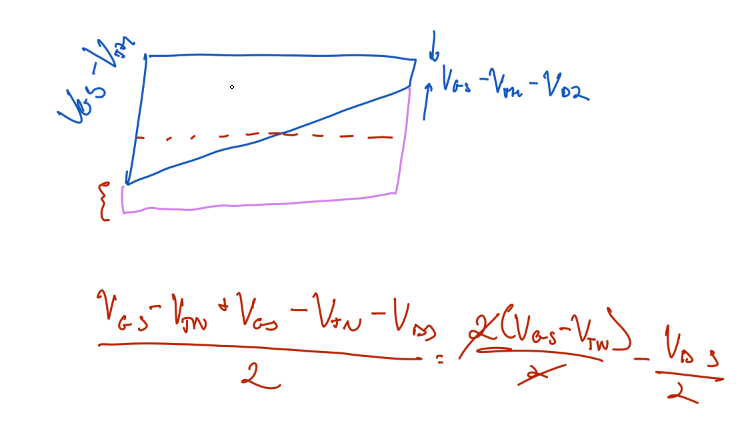 V_GS - V_TN
V_GS - V_TN - V_DS
(V_GS - V_TN + V_GS - V_TN - V_DS) / 2 = 2(V_GS - V_TN) / 2 - V_DS / 2